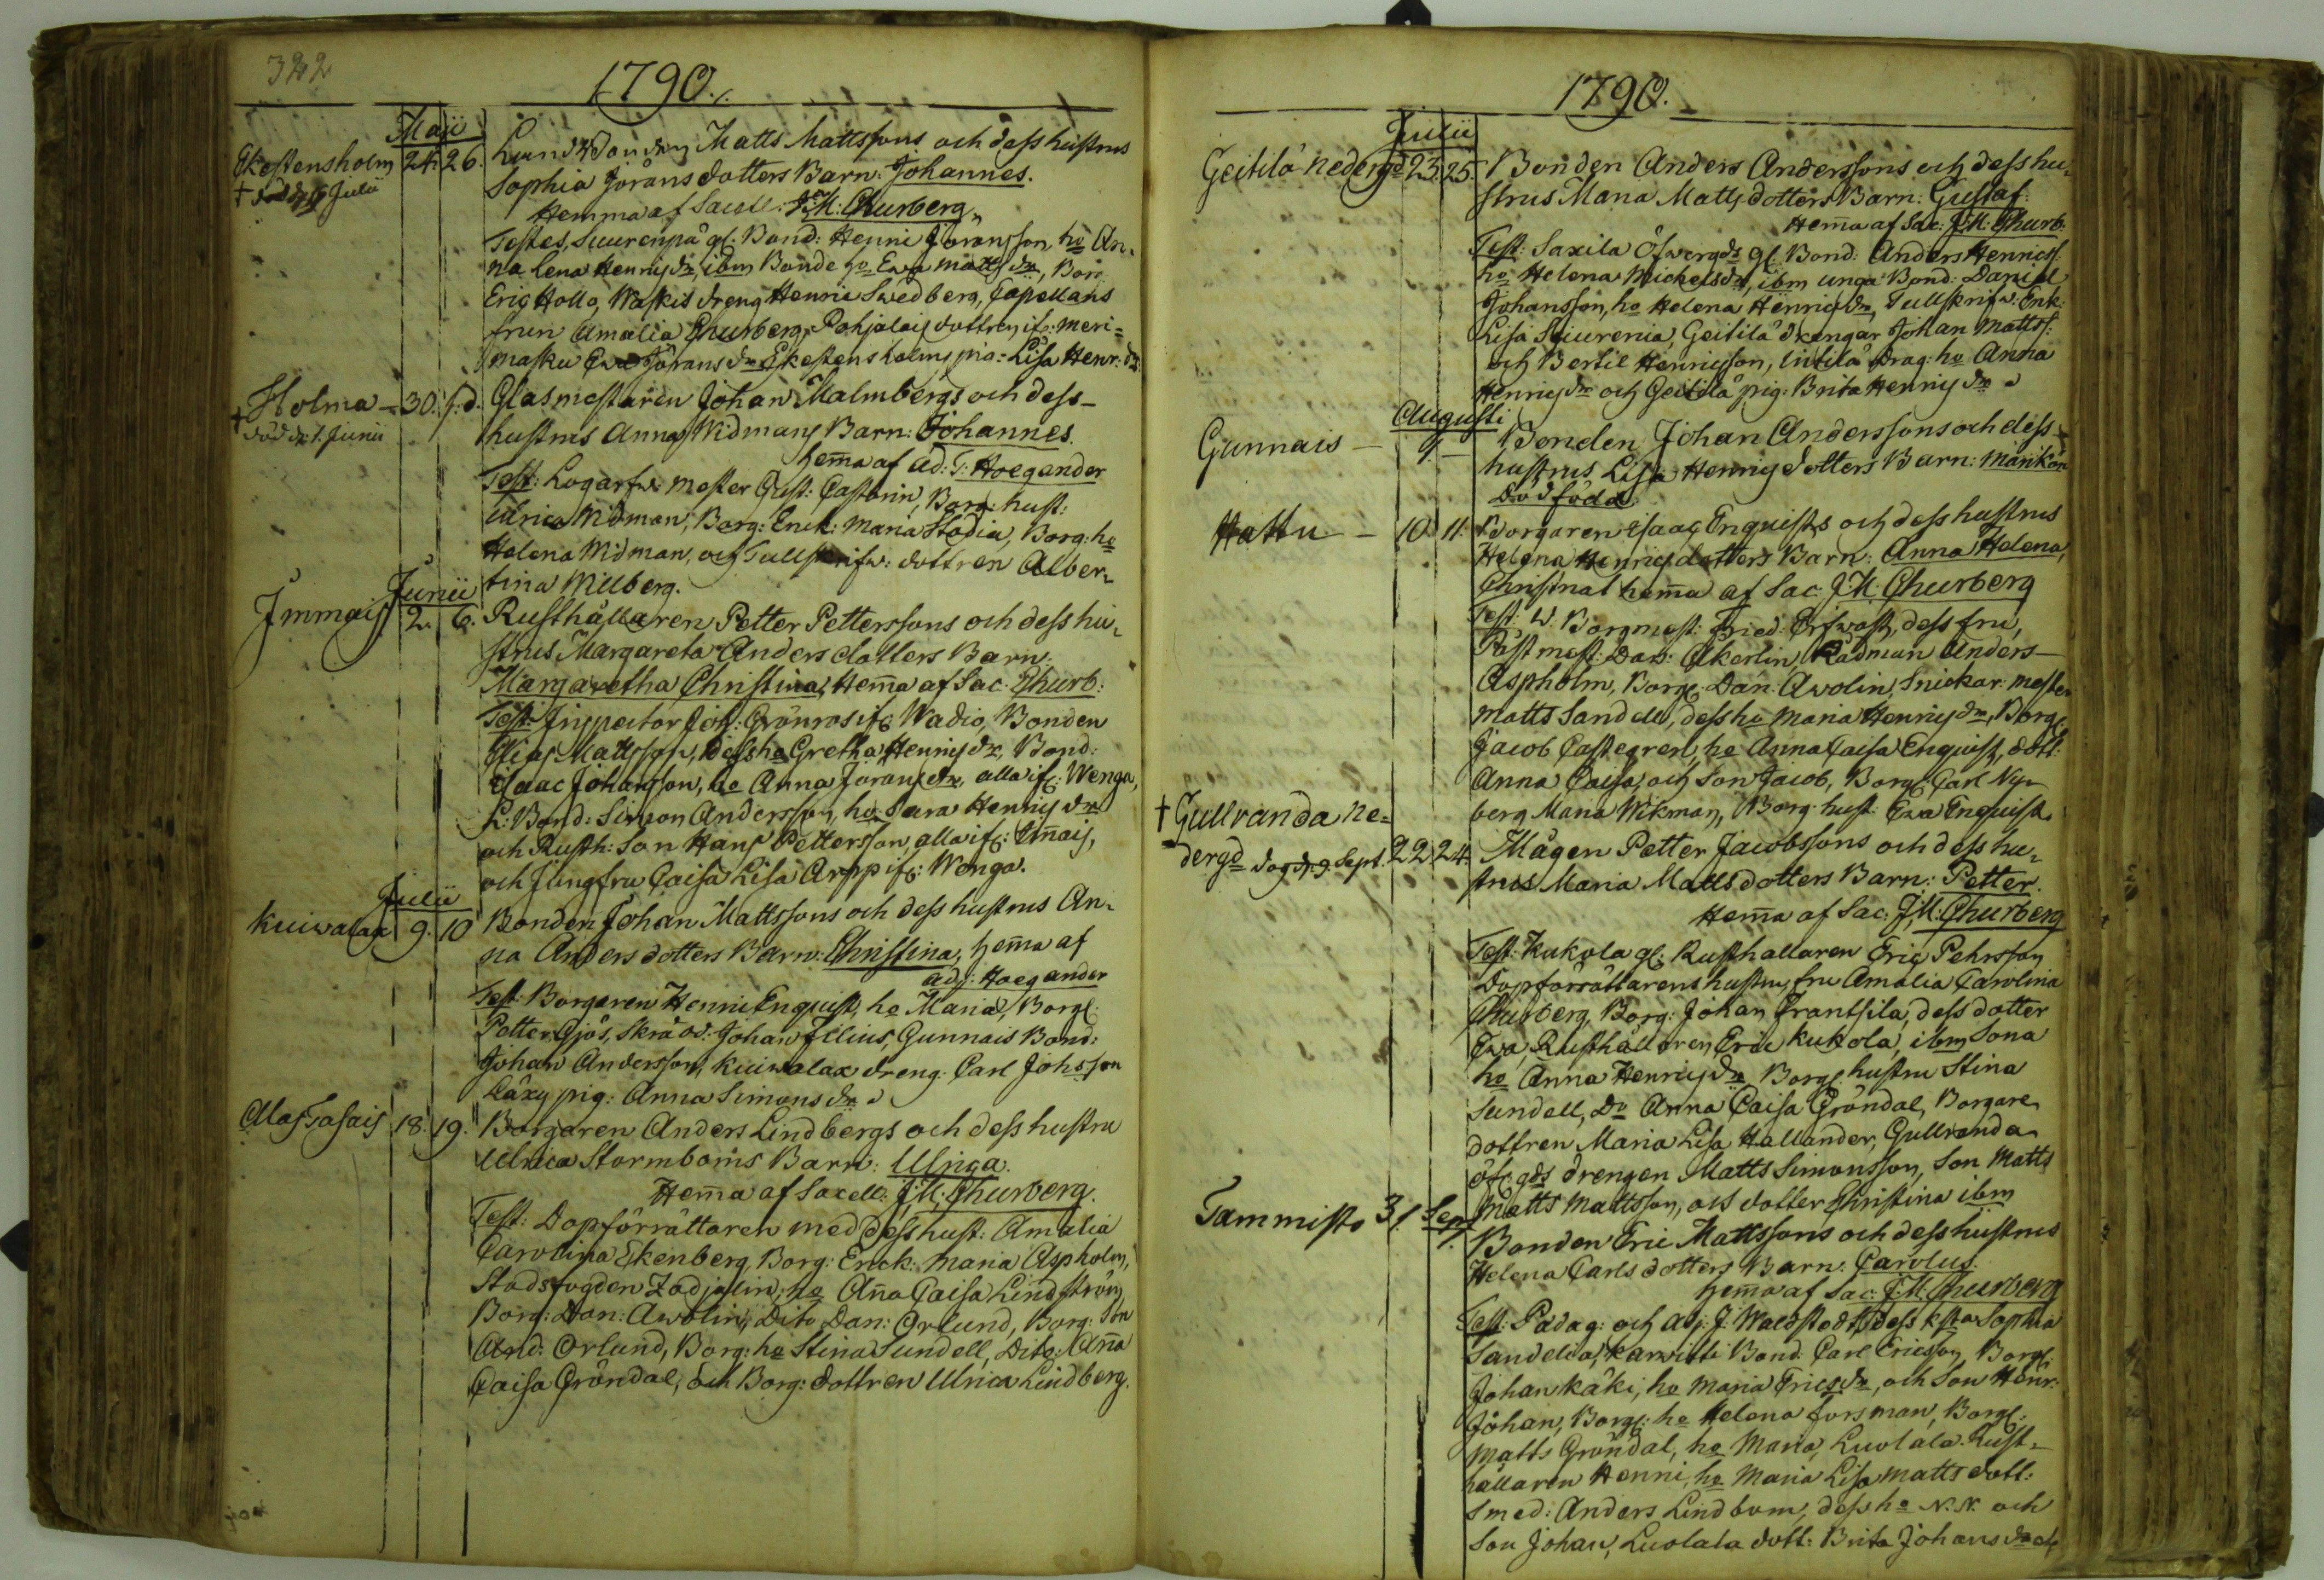 322
1790.
Maji
Ekestensholm 24. 26. Matts Mattssons och dess hustrus
† död d. Julii Sophia Jörans dotters Barn: Johannes.
Hemma af Sacell. J:M: Churberg.
Testes, Suurenpä gl. Bond: Henric Jöransson, ho An-
na Lena Henricsdr, ibm Bonde ho Ewa Mattsdr, Borg
Eric Hollo, dreng Henric Swedberg, Capellans
frun Amalia Churberg, Pohjalais dottren, if: Meri=
masku Ewa Jöransdr Ekestensholms pia: Lisa Henr: dr.
Holma – 30. s.d. Glasmestaren Johan Malmbergs och dess
† död d. 1. Junii hustrus Anna Widmans Barn: Johannes.
hema af ad: T: Hoegander
Test: Logarfw: mester Gust: Castorin, Borg: hust:
Ulrica Widman, Borg: Enck: Maria Stadia, Borg: ho
Helena Widman, och Tullskrifw: dottren Alber-
tina Willberg.
Junii
Immais 2. 6. Rusthållaren Petter Petterssons och dess hu-
strus Margareta Anders dotters Barn:
Margaretha Christina, Hema af Sac. Churb:
Test: Inspector Joh: Grönros if: Wadio, Bonden
Elias Mattsson, dess ho Gretha Henricsdr, Bond:
Isaac Johansson, ho Anna Jöransdr, alla if: Wenga,
L: Bond: Simon Andersson, ho Sara Henricsdr
och Rusth: Son Hans Pettersson, alla if: Imais,
och Jungfru Caisa Lisa Arpp if: Wenga.
Julii
Kuiwalax 9. 10 Bonden Johan Mattssons och dess hustrus An-
na Anders dotters Barn: Christina, hema af
adj: Hoegander
Test: Borgaren Henric Enquist, ho Maria, Borg:
Petter Gjös, Skräd: Johan Illius, Gunnais Bond:
Johan Andersson, Kuiwalax dreng: Carl Johsson
Läxy pig: Anna Simonsdr
Alastasais 18. 19. Borgaren Anders Lindbergs och dess hustru
Ulrica Stormboms Barn: Ulrica.
Hema af Sacell: J:M: Churberg.
Test: Dopförrättaren med dess hust: Amalia
Carolina Ekenberg, Borg: Enck: Maria Aspholm,
Stadsfogden Zadjalin, ho Anna Caisa Lindström,
Borg: Dan: Awolin, Dito Dan: Orlund, Borg: Son
And: Orlund, Borg: ho Stina Sundell, Dito: Anna
Caisa Gröndal, och Borg: dottren Ulrica Lindberg.
1790.
Julii
Geitilä nedergd 23. 25. Bonden Anders Anderssons och dess hu-
strus Maria Matts dotters Barn: Gustaf:
Hema af Sac: J:M: Churb:
Test: Saxila Öfwergds gl: Bond: Anders Henricss:
ho Helena Mickelsdr, ibm unga Bond: Daniel
Johansson, ho Helena Henricsdr, Tullskrifw: Enk:
Lisa Suurenia, Geitilä drengar Johan Mattss:
och Bertil Henricsson, drag: ho Anna
Henricsdr och Geitilä pig: Brita Henricsdr
Augusti
Gunnais – 9 – Bonden Johan Anderssons och dess
hustrus Lisa Henrics dotters Barn: mankön
Dödföda.
Hattu – 10. 11. Borgaren Isaac Enquists och dess hustrus
Helena Henrics dotters Barn: Anna Helena,
Christnat hema af Sac: J:M: Churberg
Test: W. Borgmest: Fried: Erfwast, dess fru,
Påstmest: Dav: Åkerlin, Rådman Anders
Aspholm, Borg: Dan: Awolin, Snickar mester
Matts Sandell, dess ho Maria Henricsdr, Borg:
Jacob Castegren, ho Anna Caisa Enquist, dott:
Anna Caisa, och Son Jacob, Borg: Carl Ny-
berg Maria Wikman, Borg: hust: Ewa Enquist.
† Gullranda ne=
dergd dog d. 9. Sept. 22. 24. Mågen Petter Jacobssons och dess hu-
strus Maria Matts dotters Barn: Petter.
Hema af Sac: J:M: Churberg
Test: Kukola gl: Rusthållaren Eric Pehrsson
Dopförrättarens hustru, fru Amalia Carolina
Churberg, Borg: Johan Frantsila, dess dotter
Ewa, Rusthållaren Eric Kukola, ibm Sona
ho Anna Henricsdr, Borg: hustru Stina
Sundell, Do Anna Caisa Gröndal, Borgare
dottren Maria Lisa Hallander, Gullranda
öf: gds drengen Matts Simonsson, Son Matts
Matts Mattsson, och dotter Christina ibm
Tammisto 31 Sep. Bonden Eric Mattssons och dess hustrus
Helena Carls dotters Barn: Carolus.
hema af Sac: J:M: Churberg
Test: Pædag: och adj: J: Waldstedt, dess Sophia
Sandelia, Karwitti Bond: Carl Ericsson, Borg:
Johan Käki, ho Maria Ericsdr, och Son Henr:
Johan, Borg: ho Helena Forsman, Borg:
Matts Gröndal, ho Maria, Luolala Rust-
hållaren Henric, ho Maria Lisa Matts dott:
Smed: Anders Lindbom, dess ho N.N. och
Son Johan, Luolala dott: Brita Johansdr